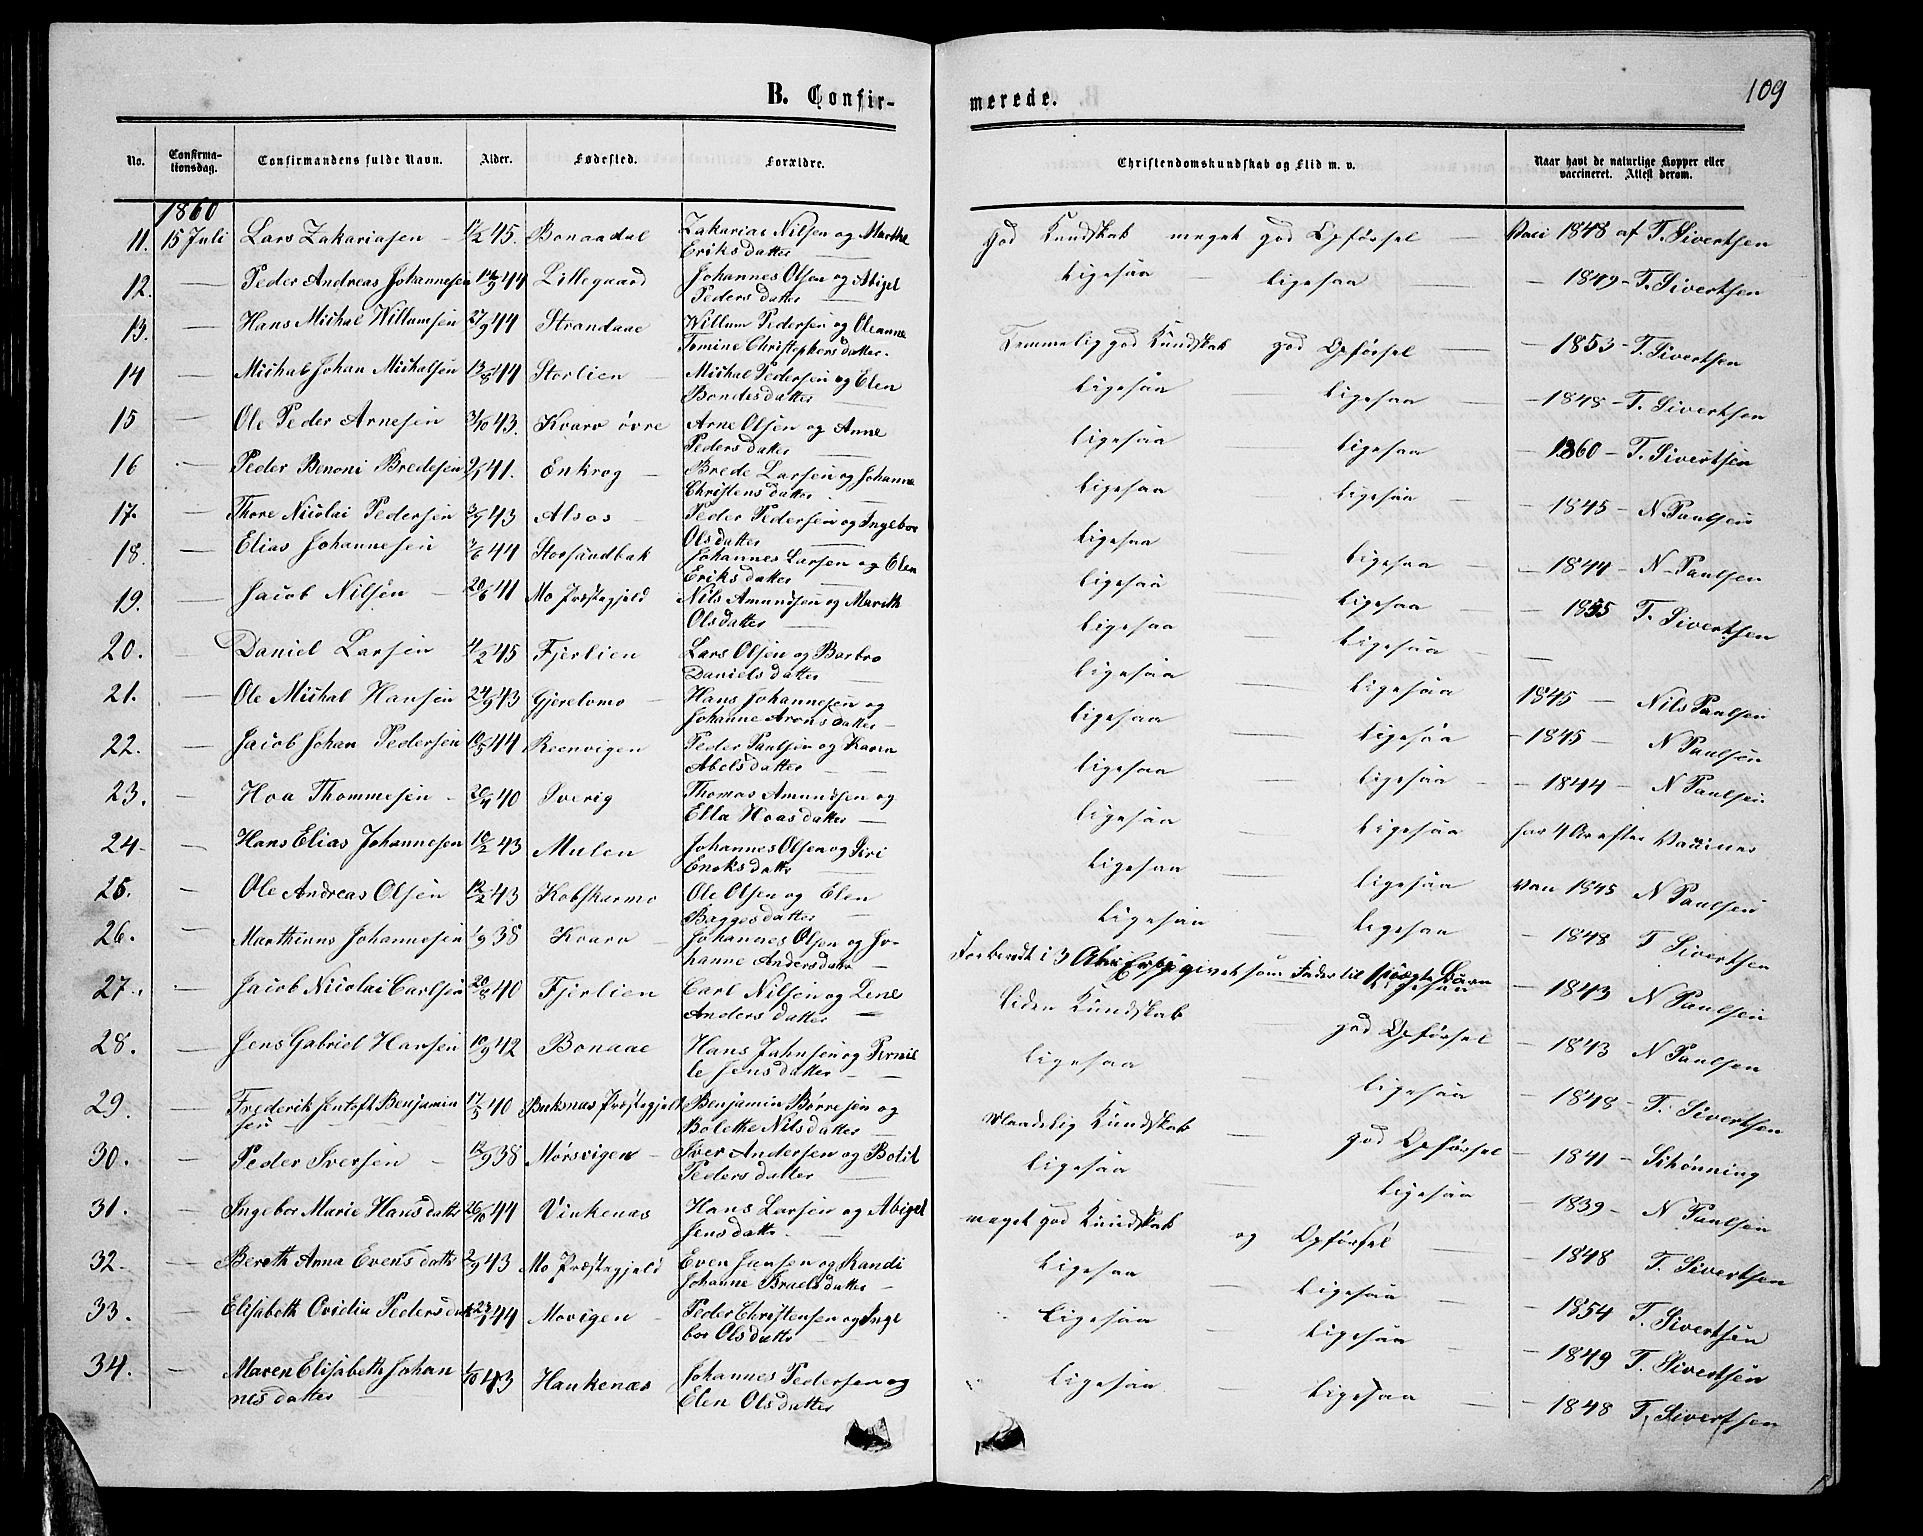 109
B. Confir-
merede.
No. Confirma-tionsdag. Confirmandens fulde Navn. Alder. Fødested. Forældre. Christendomskundskab og Flid m. v. Naar havt de naturlige Kopper eller vaccineret. Attest derom.
1860
11. 15 Juli Lars Zakariasen 45. Bonaadal Zakarias Nilsen og Marthe Eriksdatter god Kundskab meget god Opførsel Vacc 1848 af T. Sivertsen
12. Peder Andreas Johannesen 44 Lillegaard Johannes Olsen og Abigel Pedersdatter ligesaa ligesaa 1849 T. Sivertsen
13. Hans Michal Willumsen 27/9 44 Strandaae Willum Pedersen og Oleanne Tomine Christophersdatter. Temmelig god Kundskab god Opførsel 1853 T. Sivertsen
14 Michal Johan Michalsen 13/8 44 Storlien Michal Pedersen og Elen Bondesdatter ligesaa ligesaa 1848 T. Sivertsen
15 Ole Peder Arnesen 43. Kvarv övre Arne Olsen og Anne Pedersdatter ligesaa ligesaa 1860 T. Sivertsen
16 Peder Benoni Bredesen 41. Enkrog Brede Larsen og Johanne Christensdatter ligesaa ligesaa 1845 N. Paulsen
17. Thore Nicolai Pedersen 43 Alsos Peder Pedersen og Ingebor Olsdatter ligesaa ligesaa 1844 N. Paulsen
18. Elias Johannesen 44 Storsandbak Johannes Larsen og Elen Eriksdatter ligesaa ligesaa 1855 T. Sivertsen
19. Jacob Nilsen 20/6 41 Mo Præstegjeld Nils Amundsen og Marith Olsdatter ligesaa ligesaa
20. Daniel Larsen 45 Fjerlien Lars Olsen og Barbro Danielsdatter ligesaa ligesaa 1845 Nils Paulsen
21. Ole Michal Hansen 24/9 43 Gjerelvmo Hans Johannesen og Johanne Aronsdatter ligesaa ligesaa 1845 N Paulsen
22. Jacob Johan Pedersen 44 Reenvigen Peder Paulsen og Karen Abelsdatter ligesaa ligesaa 1844 N Paulsen
23. Hoa Thommesen 40 Sverig Thomas Amundsen og Ella Hoasdatter ligesaa ligesaa for 4 Ar efter Vaccines
24. Hans Elias Johannesen 43 Mulen Johannes Olsen og Siri Enoksdatter ligesaa ligesaa Vacc 1845 N Paulsen
25. Ole Andreas Olsen 12/2 43 Kobskarmo Ole Olsen og Elen Baggesdatter ligesaa ligesaa 1848 T Sivertsen
26. Marthinus Johannesen 1/9 38 Kvarv Johannes Olsen og Johanne Andersdatter ligesaa 1843 N Paulsen
27. Jacob Nicolai Carlsen 20/8 40 Fjerlien Carl Nilsen og Lene Andersdatter liden Kundskab god Opførsel 1843 N Paulsen
28. Jens Gabriel Hansen 42 Bonaae Hans Jahnsen og Pernille Jensdatter ligesaa ligesaa 1848 T. Sivertsen
29. Frederik Jentoft Benjaminsen 17/3 40 Buksnæs Præstegjeld Benjamin Børresen og Bolethe Nilsdatter Maadelig Kundskab god Opførsel 1841 Schønning
30. Peder Iversen 38 Mørsvigen Iver Andersen og Bolil Pedersdatter ligesaa ligesaa 1839 N Paulsen
31. Ingebor Marie Hansdatter 26/10 44 Vinkenæs Hans Larsen og Abigel Jensdatter. meget god Kundskab og Opførsel 1848 T. Sivertsen
32. Bereth Anna Evensdatter 2/9 43 Mo Præstegjeld Even Jansen og Randi Johanne Braelsdatter ligesaa ligesaa 1854 T. Sivertsen
33. Elisabeth Ovidia Pedersdatter 44 Movigen Peder Christensen og Ingebor Olsdatter ligesaa ligesaa 1849 T. Sivertsen
34. Maren Elisabeth Johannesdatter 43 Haukenæs Johannes Pedersen og Elen Olsdatter ligesaa ligesaa 1848 T. Sivertsen